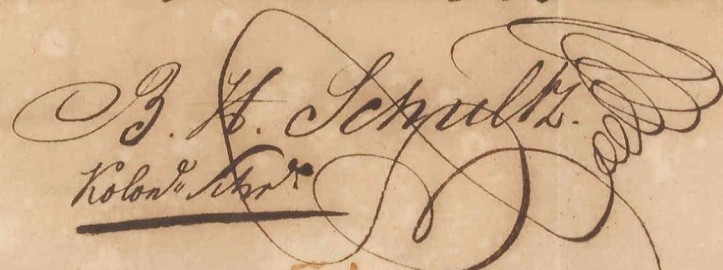 B. H. Schultz.
Kolon^e Schr^r